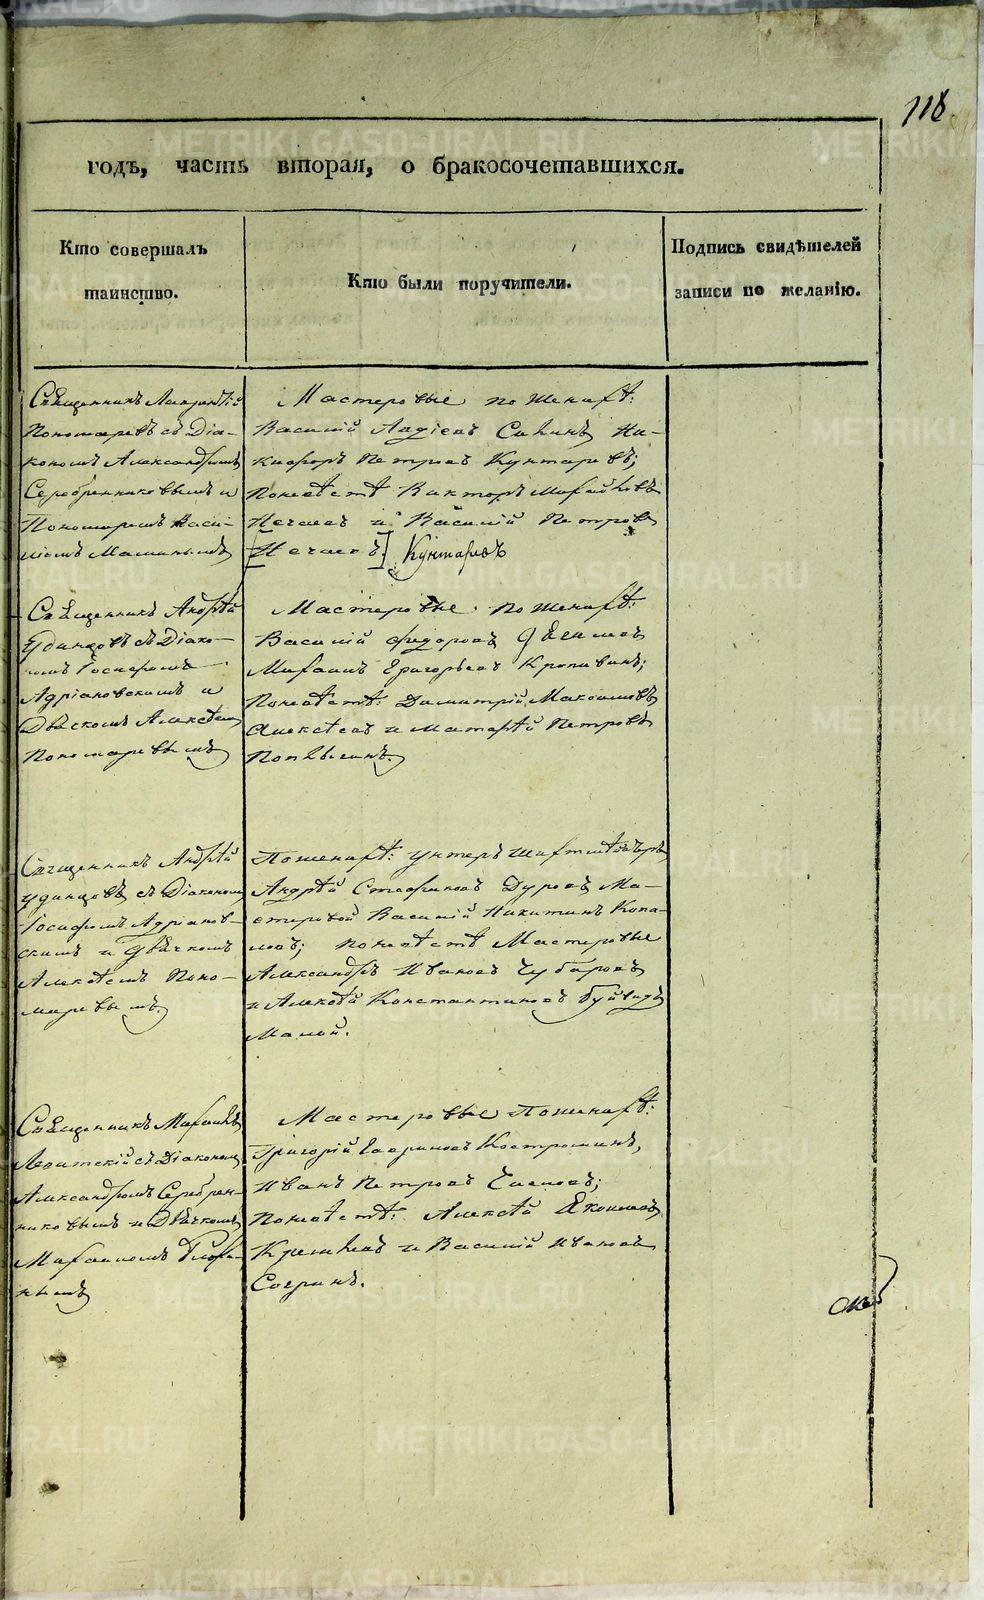 118
годъ, часть вторая, о бракосочетавшихся.
Кто совершалъ
таинство.
Кто были поручители.
Подпись свидѣтелей
записи по желанію.
Священникъ Лаврентій
Пономаревъ съ Діа-
кономъ Александромъ
Серебренниковымъ и
Пономаремъ Васи-
ліемъ
Мастеровые по женихѣ:
Василій Авдіевъ Ни-
кифоръ Петровъ Кунтаревъ;
По невѣстѣ Викторъ Михайловъ
Нечаевъ и Василій Петровъ
[Нечаевъ] Кунтаревъ
Священникъ Андрей
Удинцовъ съ Діако-
номъ Іосифомъ
Адріановскимъ и
Дьячкомъ Алексѣемъ
Пономаревымъ
Мастеровые по женихѣ:
Василій Федоровъ
Михаилъ Григорьевъ Кропивинъ;
По невѣстѣ: Димитрій Максимовъ
Алексѣевъ и Матвѣй Петровъ
Священникъ Андрей
Удинцовъ съ Діакономъ
Іосифомъ Адріанов-
скимъ и Дьячкомъ
Алексѣемъ Поно-
маревымъ.
По женихѣ: унтеръ шихтмейстеръ
Андрей Стефановъ Дуровъ Ма-
стеровой Василій Никитинъ
по невѣстѣ Мастеровые
Александръ Ивановъ Чубаровъ
и Алексѣй Константиновъ
Малой.
Священникъ Михаилъ
Левитскій съ Діакономъ
Александромъ Серебрен-
никовымъ и Дьячкомъ
Михаиломъ
Мастеровые По женихѣ:
Григорій Гавриловъ Костроминъ,
Иванъ Петровъ
По невѣстѣ: Алексѣй Екимовъ
и Василій Ивановъ
Согринъ.